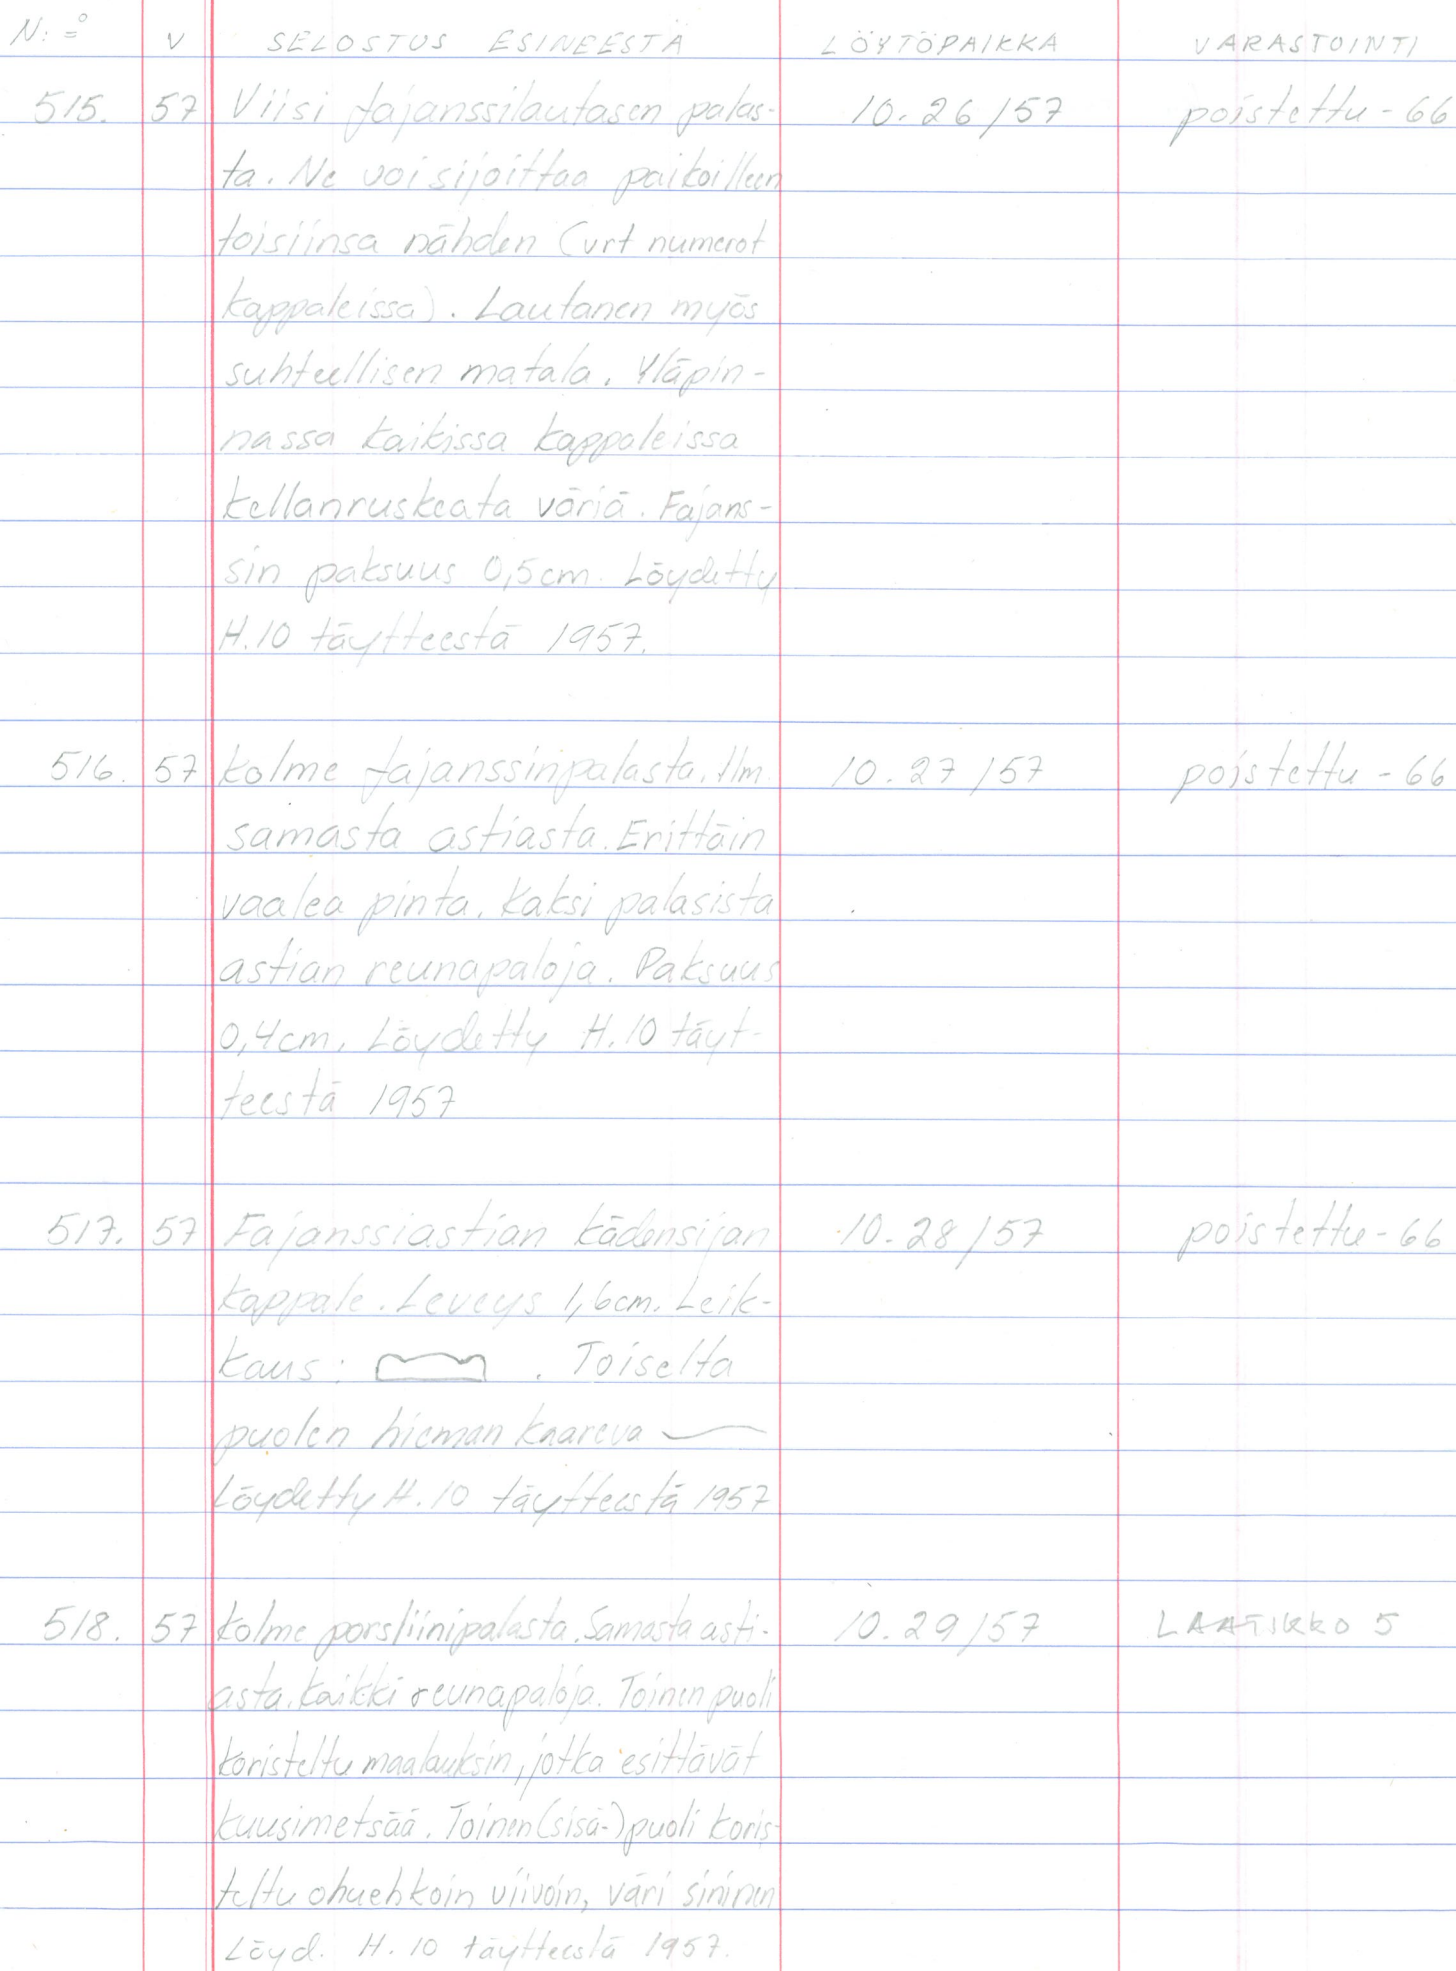 N:o V SELOSTUS ESINEESTÄ LÖYTÖPAIKKA VARASTOINTI
515. 57 Viisi fajanssilautasen palas- 10.26/57 poistettu - 66
ta. Ne voi sijoittaa paikoilleen
toisiinsa nähden (vrt numerot
kappaleissa). Lautanen myös
suhteellisen matala. Yläpin-
nassa kaikissa kappaleissa
kellanruskeata väriä. Fajans-
sin paksuus 0,5cm. Löydetty
H.10 täytteestä 1957.
516. 57 Kolme fajanssinpalasta. Ilm. 10.27/57 poistettu - 66
samasta astiasta. Erittäin
vaalea pinta. Kaksi palasista
astian reunapaloja. Paksuus
0,4cm. Löydetty H.10 täyt-
teestä 1957
517. 57 Fajanssiastian kädensijan 10.28/57 poistettu - 66
kappale. Leveys 1,6cm. Leik-
kaus: . Toiselta
puolen hieman kaareva
Löydetty H.10 täytteestä 1957
518. 57 Kolme porsliinipalasta. Samasta asti- 10.29/57 LAATIKKO 5
asta. Kaikki reunapaloja. Toinen puoli
koristeltu maalauksin, jotka esittävät
kuusimetsää. Toinen (sisä-) puoli koris-
teltu ohuehkoin viivoin, väri sininen
Löyd. H.10 täytteestä 1957.